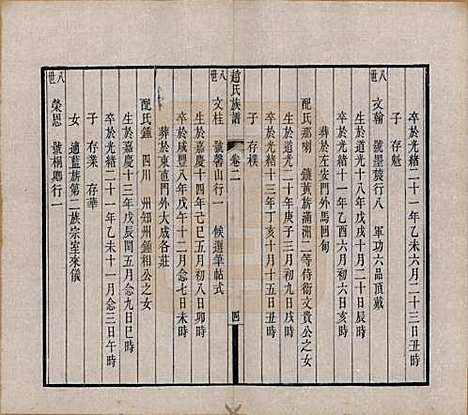 卒於光緒二十一年六月二十三日丑時
子　存魁
八世
文翰　號墨藝行八　軍功六品頂戴
生於道光十八年戊戌十月二十日辰時
卒於光緒十一年乙酉六月初六日亥時
葬於左安門外馬回甸
配氏那喇　鑲黃族滿洲二等侍衛文貴公之女
生於道光二十年庚子三月初九日戌時
卒於光緒十三年丁亥十月十五日丑時
子　存樸
趙氏族譜　卷二　四
八世
文桂　號馨山行一　候選筆帖式
生於嘉慶十四年己巳五月初八日卯時
卒於咸豐八年戊午十二月念七日未時
葬於東直門外大成各莊
配氏鍾　四川　州知州鍾相公之女
生於嘉慶十三年戊辰閏五月念九日巳時
卒於光緒二十一年乙未十一月念三日午時
子　存業　存華
女　適藍族第二族宗室來儀
八世
榮恩　號桐卿行一